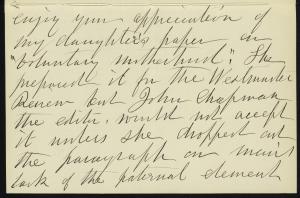 enjoy your appreciation of
my daughter's paper on
"Voluntary motherhood". She
prepared it for the Westminster
Review but John Chapman
the editor would not accept
it unless she dropped out
the paragraph on man's
lack of the paternal element